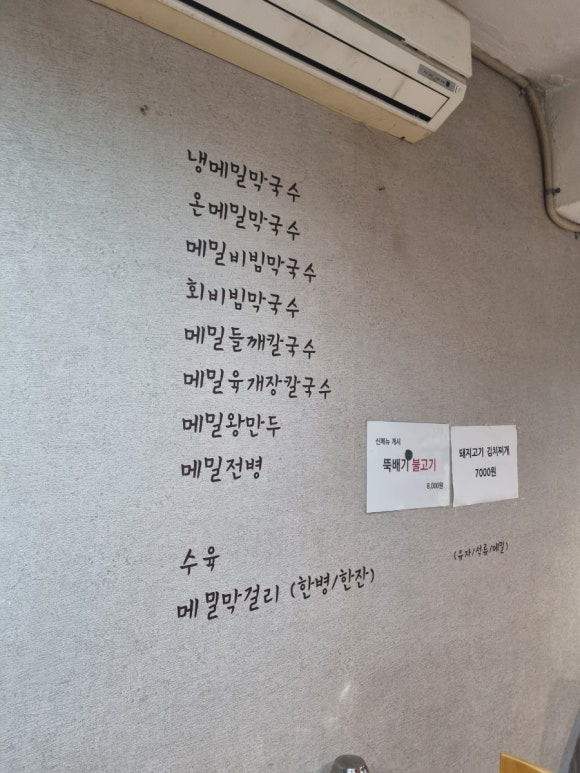 냉메밀막국수
온메밀막국수
메밀비빔막국수
회비빔막국수
메밀들깨칼국수
메밀육개장칼국수
메밀왕만두
메밀전병
신메뉴 개시
뚝배기 불고기
8,000원
돼지고기 김치찌개
7000원
수육
메밀막걸리 (한병/한잔)
(유자/석류/메밀)